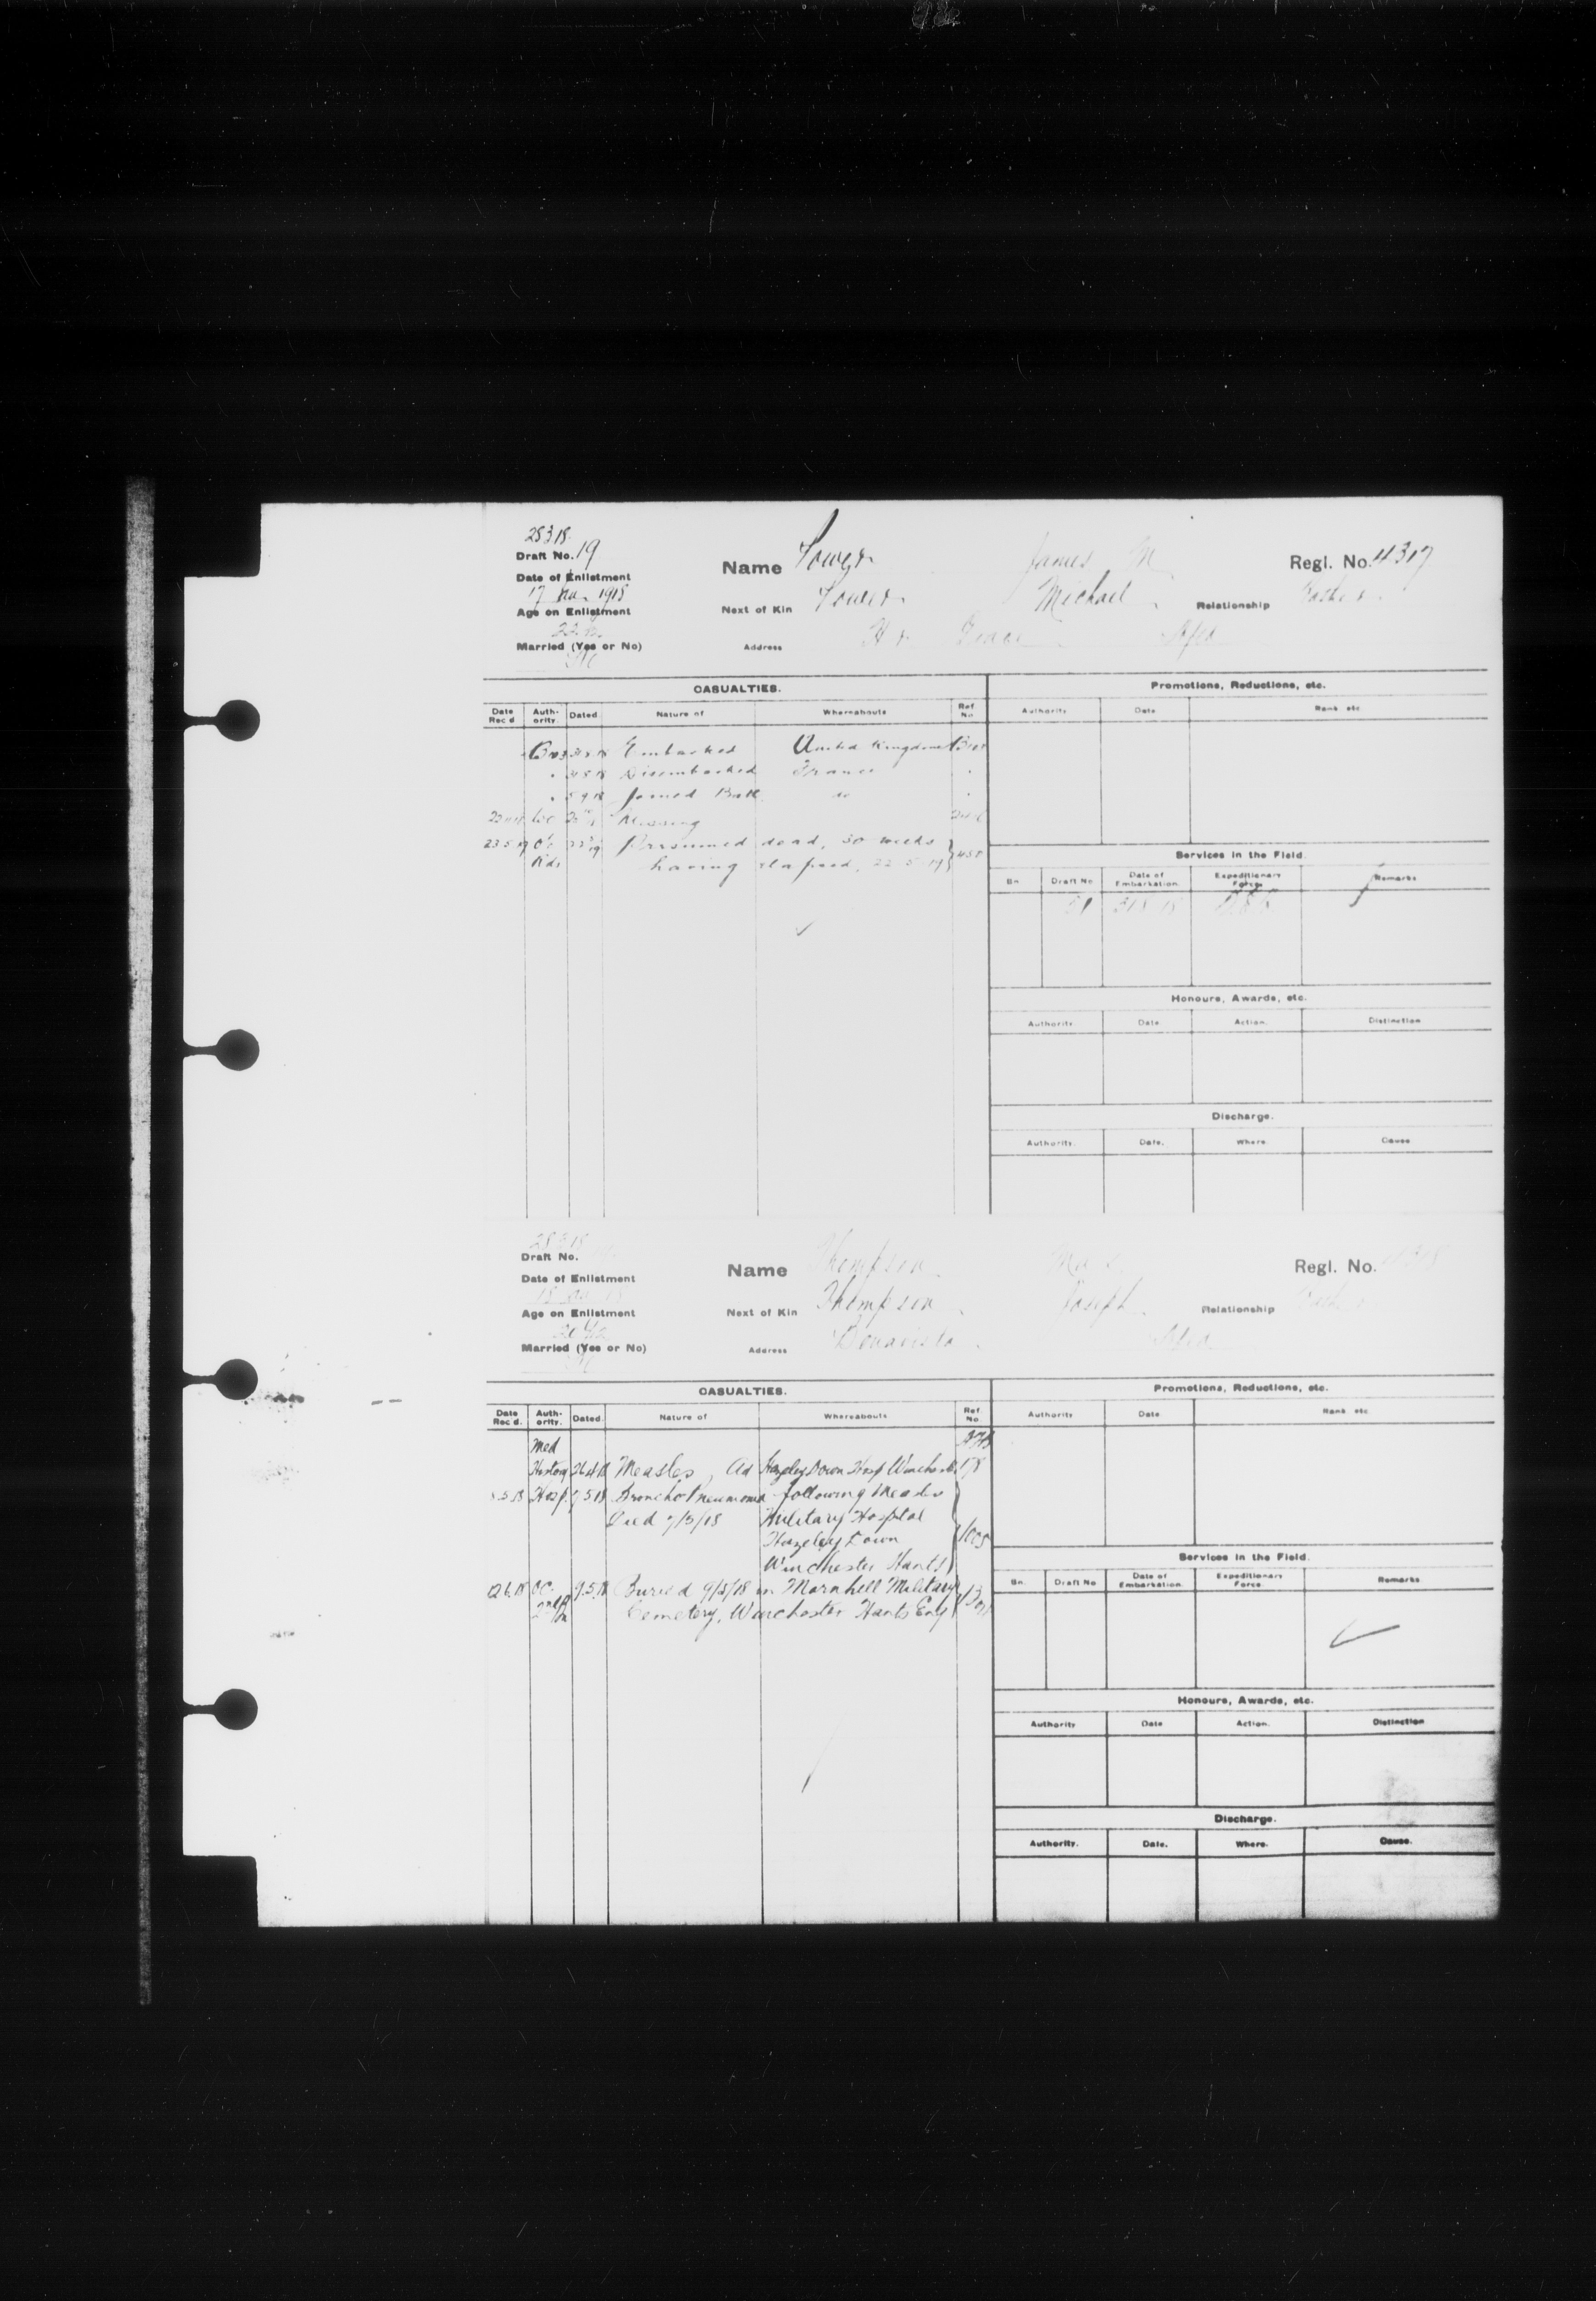 28 3 18
Draft No. 19
Name Power James M Regl. No. 4317
Date of Enlistment
17 1918
Next of Kin Power Michael Relationship Father
Age on Enlistment
Address Hr Grace Nfld
Married (Yes or No)
No
CASUALTIES.
Promotions, Reductions, etc.
Date Rec'd Auth-ority. Dated. Nature of Whereabouts Ref No Authority Date Rank etc
B103 31 8 18 Embarked United Kingdom B103
" 31 8 18 Disembarked France "
" 5 9 18 Joined Batt. do "
Missing
23 5 19 Presumed dead, 30 weeks
Rds having elapsed, 22 5 19 458
Services in the Field.
Bn Draft No Date of Embarkation. Expeditionary Force. Remarks
31 8 18
Honours, Awards, etc.
Authority Date. Action. Distinction
Discharge.
Authority. Date. Where. Cause
28 3 18
Draft No.
Name Thompson Regl. No. 4318
Date of Enlistment
Next of Kin Thompson Joseph Relationship Father
Age on Enlistment
Address Bonavista Nfld
Married (Yes or No)
No
CASUALTIES.
Promotions, Reductions, etc.
Date Rec'd. Auth-ority. Dated. Nature of Whereabouts Ref. No. Authority Date Rank etc
Med
History 26 4 18 Measles Ad Hazeley Down Hosp Winchester
8 5 18 Hosp. 7 5 18 Broncho Pneumonia following Measles
Died 7/5/18 Military Hospital
Hazeley Down 1005
Winchester Hants
12 6 18 OC. 9.5.18 Buried 9/5/18 in Mornhill Military
2nd Bn Cemetery, Winchester Hants Eng
Services in the Field.
Bn. Draft No Date of Embarkation. Expeditionary Force. Remarks
Honours, Awards, etc.
Authority Date Action. Distinction
Discharge.
Authority. Date. Where. Cause.